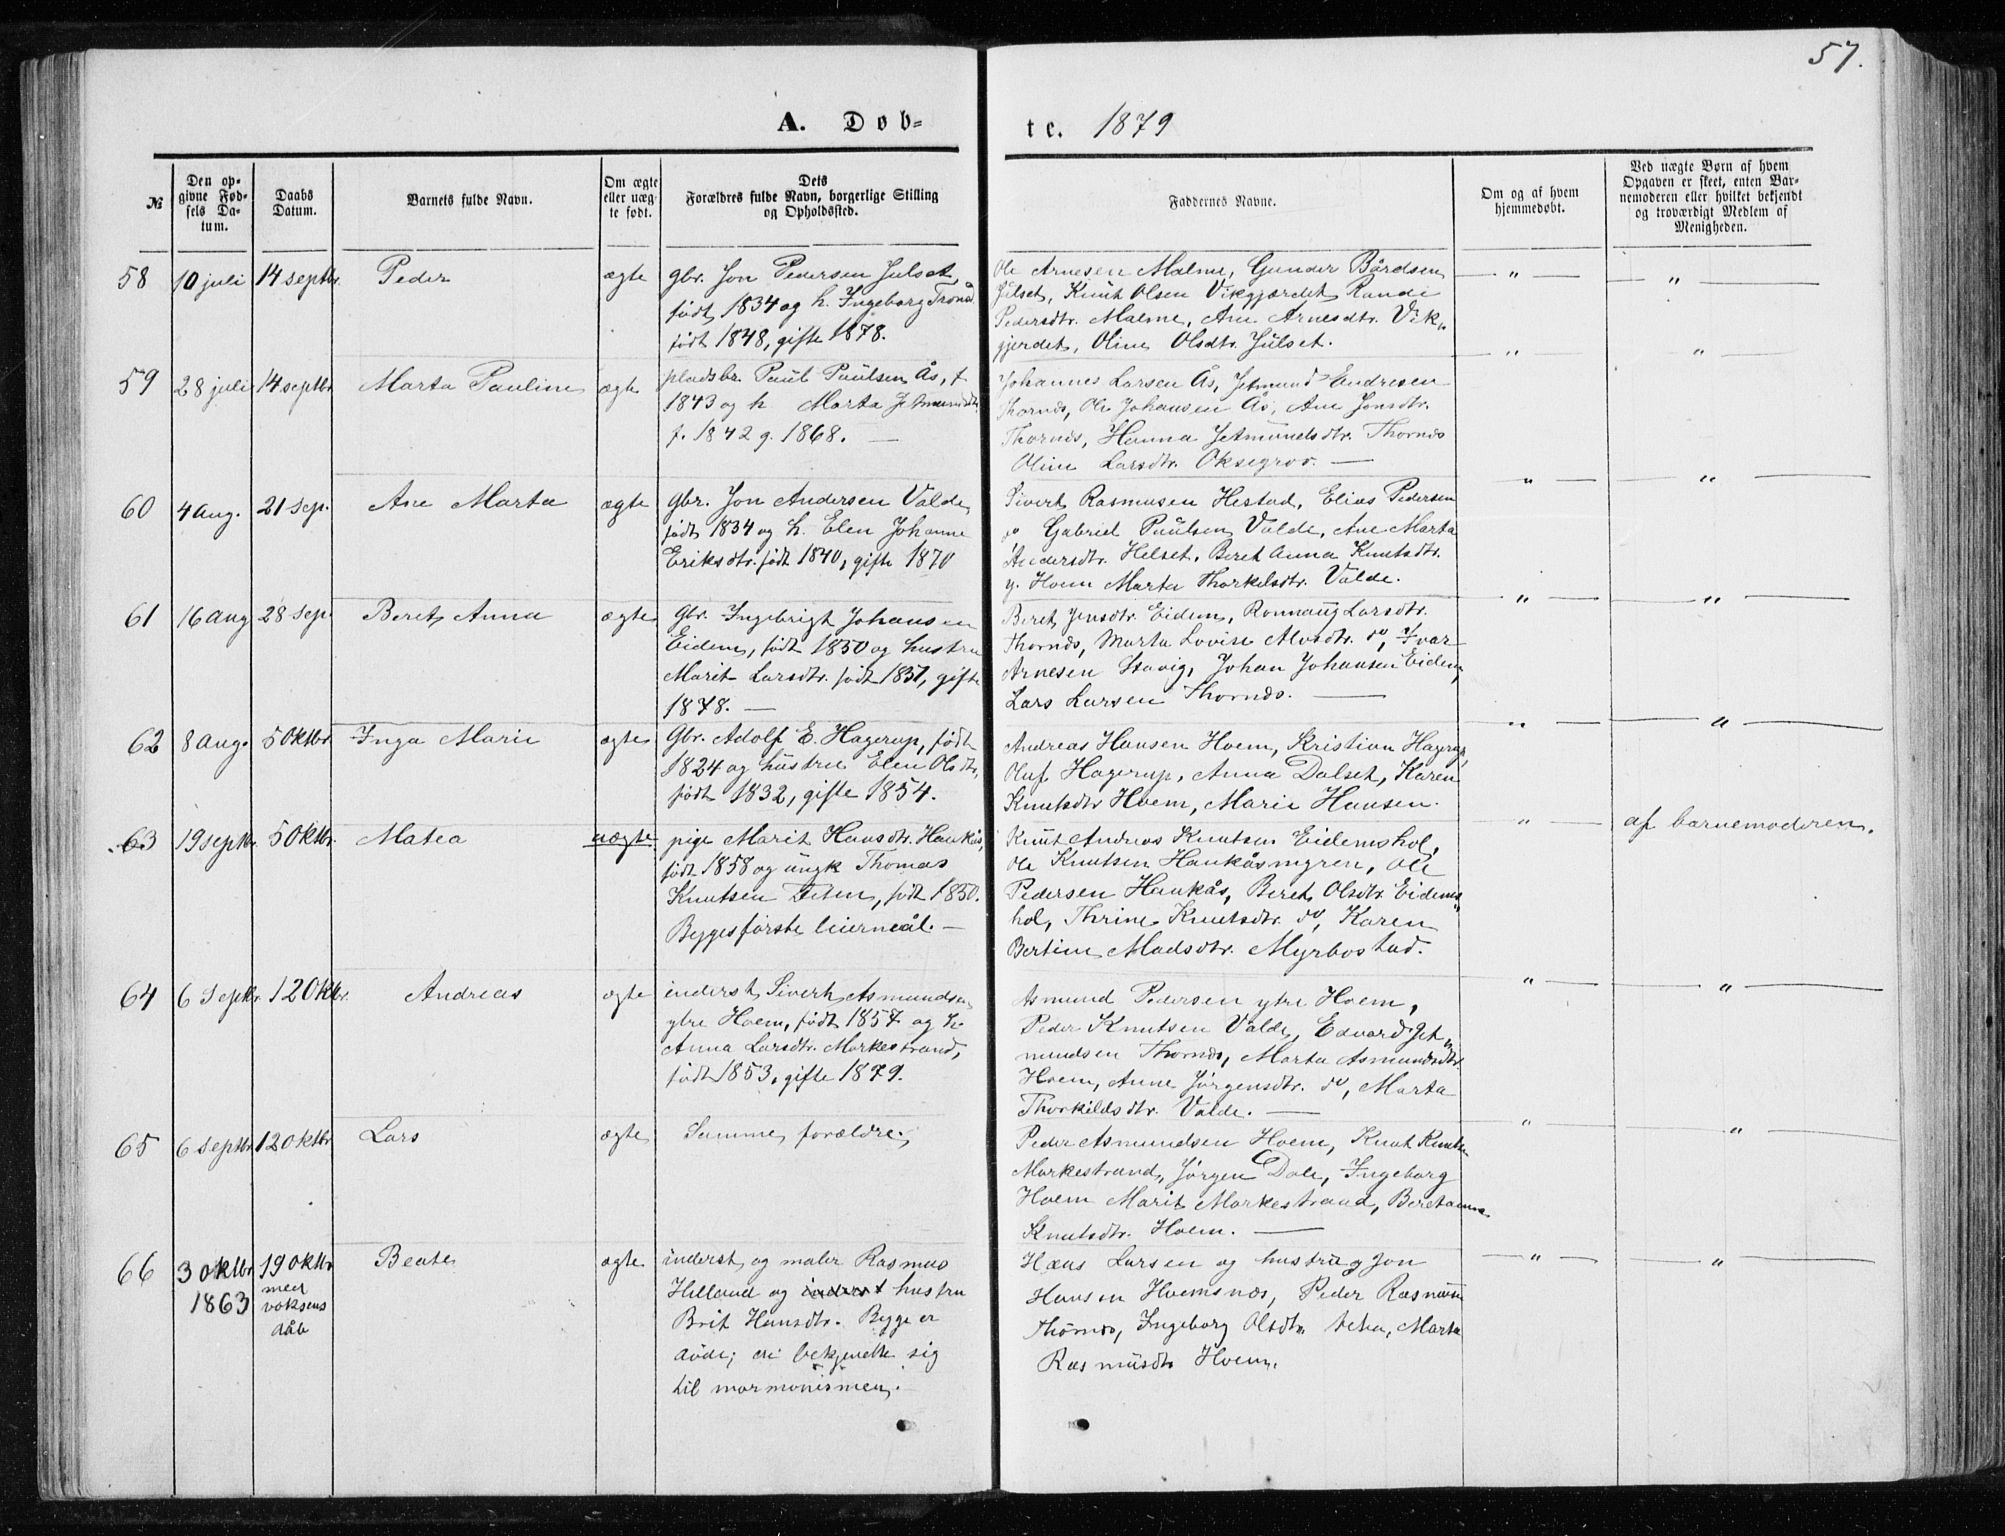 57.
A. Døb-
te. 1879
№
Den op-
givne Fød-
sels Da-
tum.
Daabs
Datum.
Barnets fulde Navn.
Om ægte
eller uæg-
te født.
Dets
Forældres fulde Navn, borgerlige Stilling
og Opholdssted.
Faddernes Navne.
Om og af hvem
hjemmedøbt.
Ved uægte Børn af hvem
Opgaven er skeet, enten Bar-
nemoderen eller hvilket bekjendt
og troværdigt Medlem af
Menigheden.
58 10 juli 14 septbr. Peder ægte
gbr. Jon Pedersen Julset,
født 1834 og h. Ingeborg Trond
født 1848, gifte 1878.
Ole Arnesen Malme, Gunder Bårdsen
Julset, Knut Olsen Vikgjærdet Randi
Pedersdtr. Malme, Ane Arnesdtr. Vik„
gjerdet, Oline Olsdtr. Julset.
" "
59 28 juli 14 septbr. Marta Pauline ægte
pladsbr. Paul Paulsen Ås, f.
1843 og h. Marta Jetmundsdtr.
f. 1842 g. 1868. —
Johannes Larsen Ås, Jetmund Endresen
Thornes, Ole Johansen Ås, Ane Jonsdtr.
Thornes, Hanna Jetmundsdtr. Thornes
Oline Larsdtr. Oksegrov. —
" "
60 4 aug. 21 sep. Ane Marta ægte
gbr. Jon Andersen Valde,
født 1834 og h. Elen Johanne
Eriksdtr. født 1840, gifte 1870
Sivert Rasmusen Hestad, Elias Pedersen
do Gabriel Paulsen Valde, Ane Marta
Andersdtr. Helset, Beret Anna Knutsdtr.
y. Hoem Marta Thorkelsdtr. Valde.
" "
61 16 aug 28 sep. Beret Anna ægte
Gbr. Ingebrigt Johansen
Eidem, født 1850 og hustru
Marit Larsdtr. født 1851, gifte
1878. —
Beret Jensdtr. Eidem, Ronnaug Larsdtr.
Thornes, Marta Lovise Alvsdtr. do, Ivar
Arnesen Stavig, Johan Johansen Eidem,
Lars Larsen Thornes. —
" "
62 8 aug. 5 oktbr. Inga Marie ægte
Gbr. Adolf E. Hagerup, født
1824 og hustru Elen Olsdtr,
født 1832, gifte 1854.
Andreas Hansen Hoem, Kristian Hagerup,
Oluf Hagerup, Anna Dalset, Karen
Knutsdtr Hoem, Marie Hansen.
" "
63 19 septbr. 5 oktbr. Matea uægte
pige Marit Hansdtr. Haukås,
født 1858 og ungk Thomas
Knutsen Teten, født 1850.
Begges første leiermål. —
Knut Andreas Knutsen Eidemshol,
Ole Knutsen Haukåsmyren, Ole
Pedersen Haukås, Beret Olsdtr. Eidems„
hol, Thrine Knutsdtr. do, Karen
Bertine Madsdtr. Myrbostad.
" af barnemoderen.
64 6 Septbr. 12 Oktbr. Andreas ægte
inderst Sivert Asmundsen
ytre Hoem, født 1857 og h.
Anna Larsdtr. Morkestrand,
født 1853, gifte 1879.
Asmund Pedersen ytre Hoem,
Peder Knutsen Valde, Edvard Jet„
mundsen Thornes, Marta Asmundsdtr.
Hoem, Anne Jörgensdtr. do, Marta
Thorkildsdtr. Valde. —
" "
65 6 septbr. 12 oktbr. Lars ægte
Samme forældre.
Peder Asmundsen Hoem, Knut Knutsen
Morkestrand, Jörgen Dale, Ingeborg
Hoem Marit Morkestrand, Beretanna
Knutsdtr. Hoem. —
" "
66 3 oktbr. 1863
19 oktbr.
med
voksens
dåb
Beate ægte
inderst og maler Rasmus
Helland og inderst hustru
Brit Hansdtr. Begge er
døde; de bekjendte sig
til mormonismen.
Hans Larsen og hustru og Jon
Hansen Hoemsnes, Peder Rasmus
Thornes, Ingeborg Olsdtr. Marta
Rasmusdtr Hoem.
" "